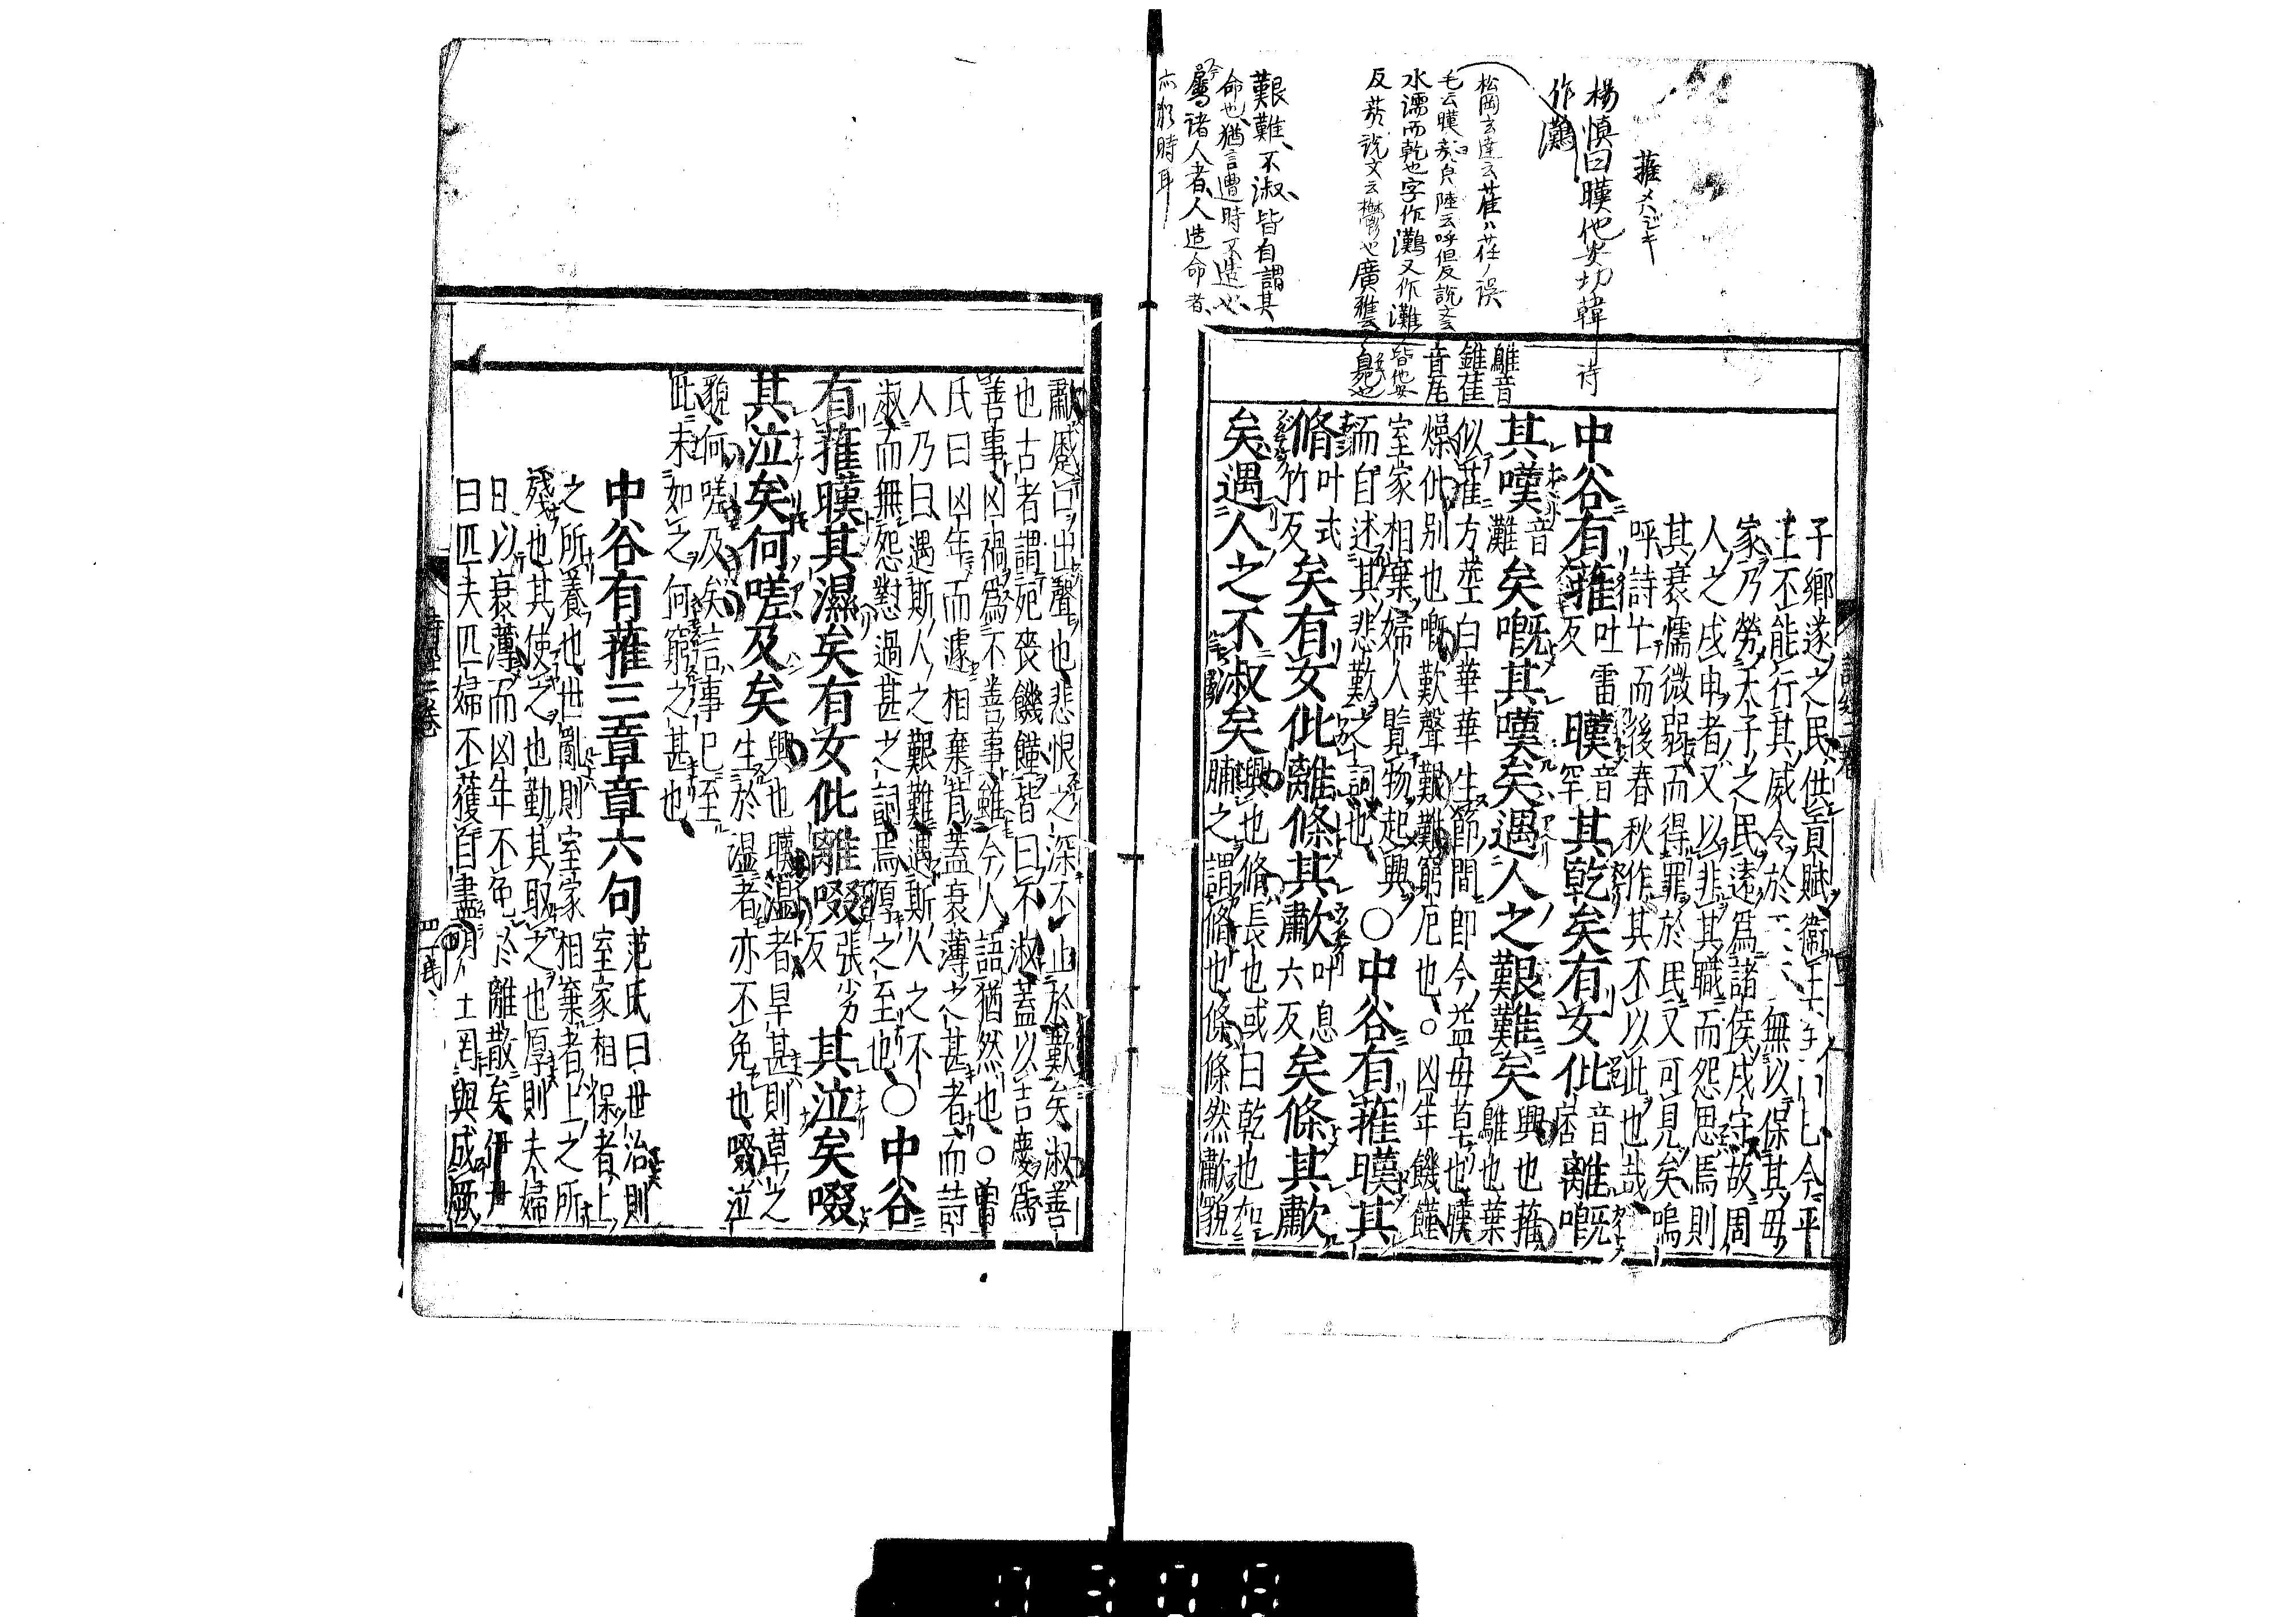 蓷メハジキ
楊慎曰暵他安切韓詩
作灘
松岡玄達云萑ハ茬ノ誤
水濡而乾也字作灘又作灘皆他安
反菸說文云欝也廣雅云臭也
艱難不淑皆自謂其
命也猶言遭時不造也
屬諸人者人造命者
亦影時耳
鵻音
錐萑
音隹
子鄉遂之民供貢賦衛王室而已今平
王不能行其威令於天下無以保其母
家乃勞天子之民遠為諸侯戍守故周
人之戍申者又以非其職而怨思焉則
其衰懦微弱而得罪於民又可見矣嗚
呼詩亡而後春秋作其不以此也哉
中谷有蓷吐雷反暵音罕其乾矣有女仳音痞離嘅
其嘆音灘矣嘅其嘆矣遇人之艱難矣興也蓷鵻也葉
似萑方莖白華華生節間即今益母草也暵
燥仳別也嘅歎聲艱難窮厄也○凶年饑饉
室家相棄婦人覽物起興
而自述其悲歎之詞也○中谷有蓷暵其
脩叶式竹反矣有女仳離條其歗叶息六反矣條其歗
矣遇人之不淑矣興也脩長也或曰乾也如
脯之謂脩也條條然歗貌
歗蹙口出聲也悲恨之深不止於歎矣淑善
也古者謂死喪饑饉皆曰不淑蓋以吉慶為
善事凶禍為不善事雖今人語猶然也○曾
氏曰凶年而遽相棄背蓋衰薄之甚者而詩
人乃曰遇斯人之艱難遇斯人之不
淑而無怨懟過甚之詞焉厚之至也○中谷
有蓷暵其濕矣有女仳離啜張劣反其泣矣啜
其泣矣何嗟及矣興也暵濕者旱甚則草之
生於濕者亦不免也啜泣
貌何嗟及矣言事已至
此末如之何窮之甚也
中谷有蓷三章章六句范氏曰世治則
室家相保者上
之所養也世亂則室家相棄者上之所
殘也其使之也勤其取之也厚則夫婦
日以衰薄而凶年不免於離散矣伊尹
曰匹夫匹婦不獲自盡民主罔與成厥
詩經二卷